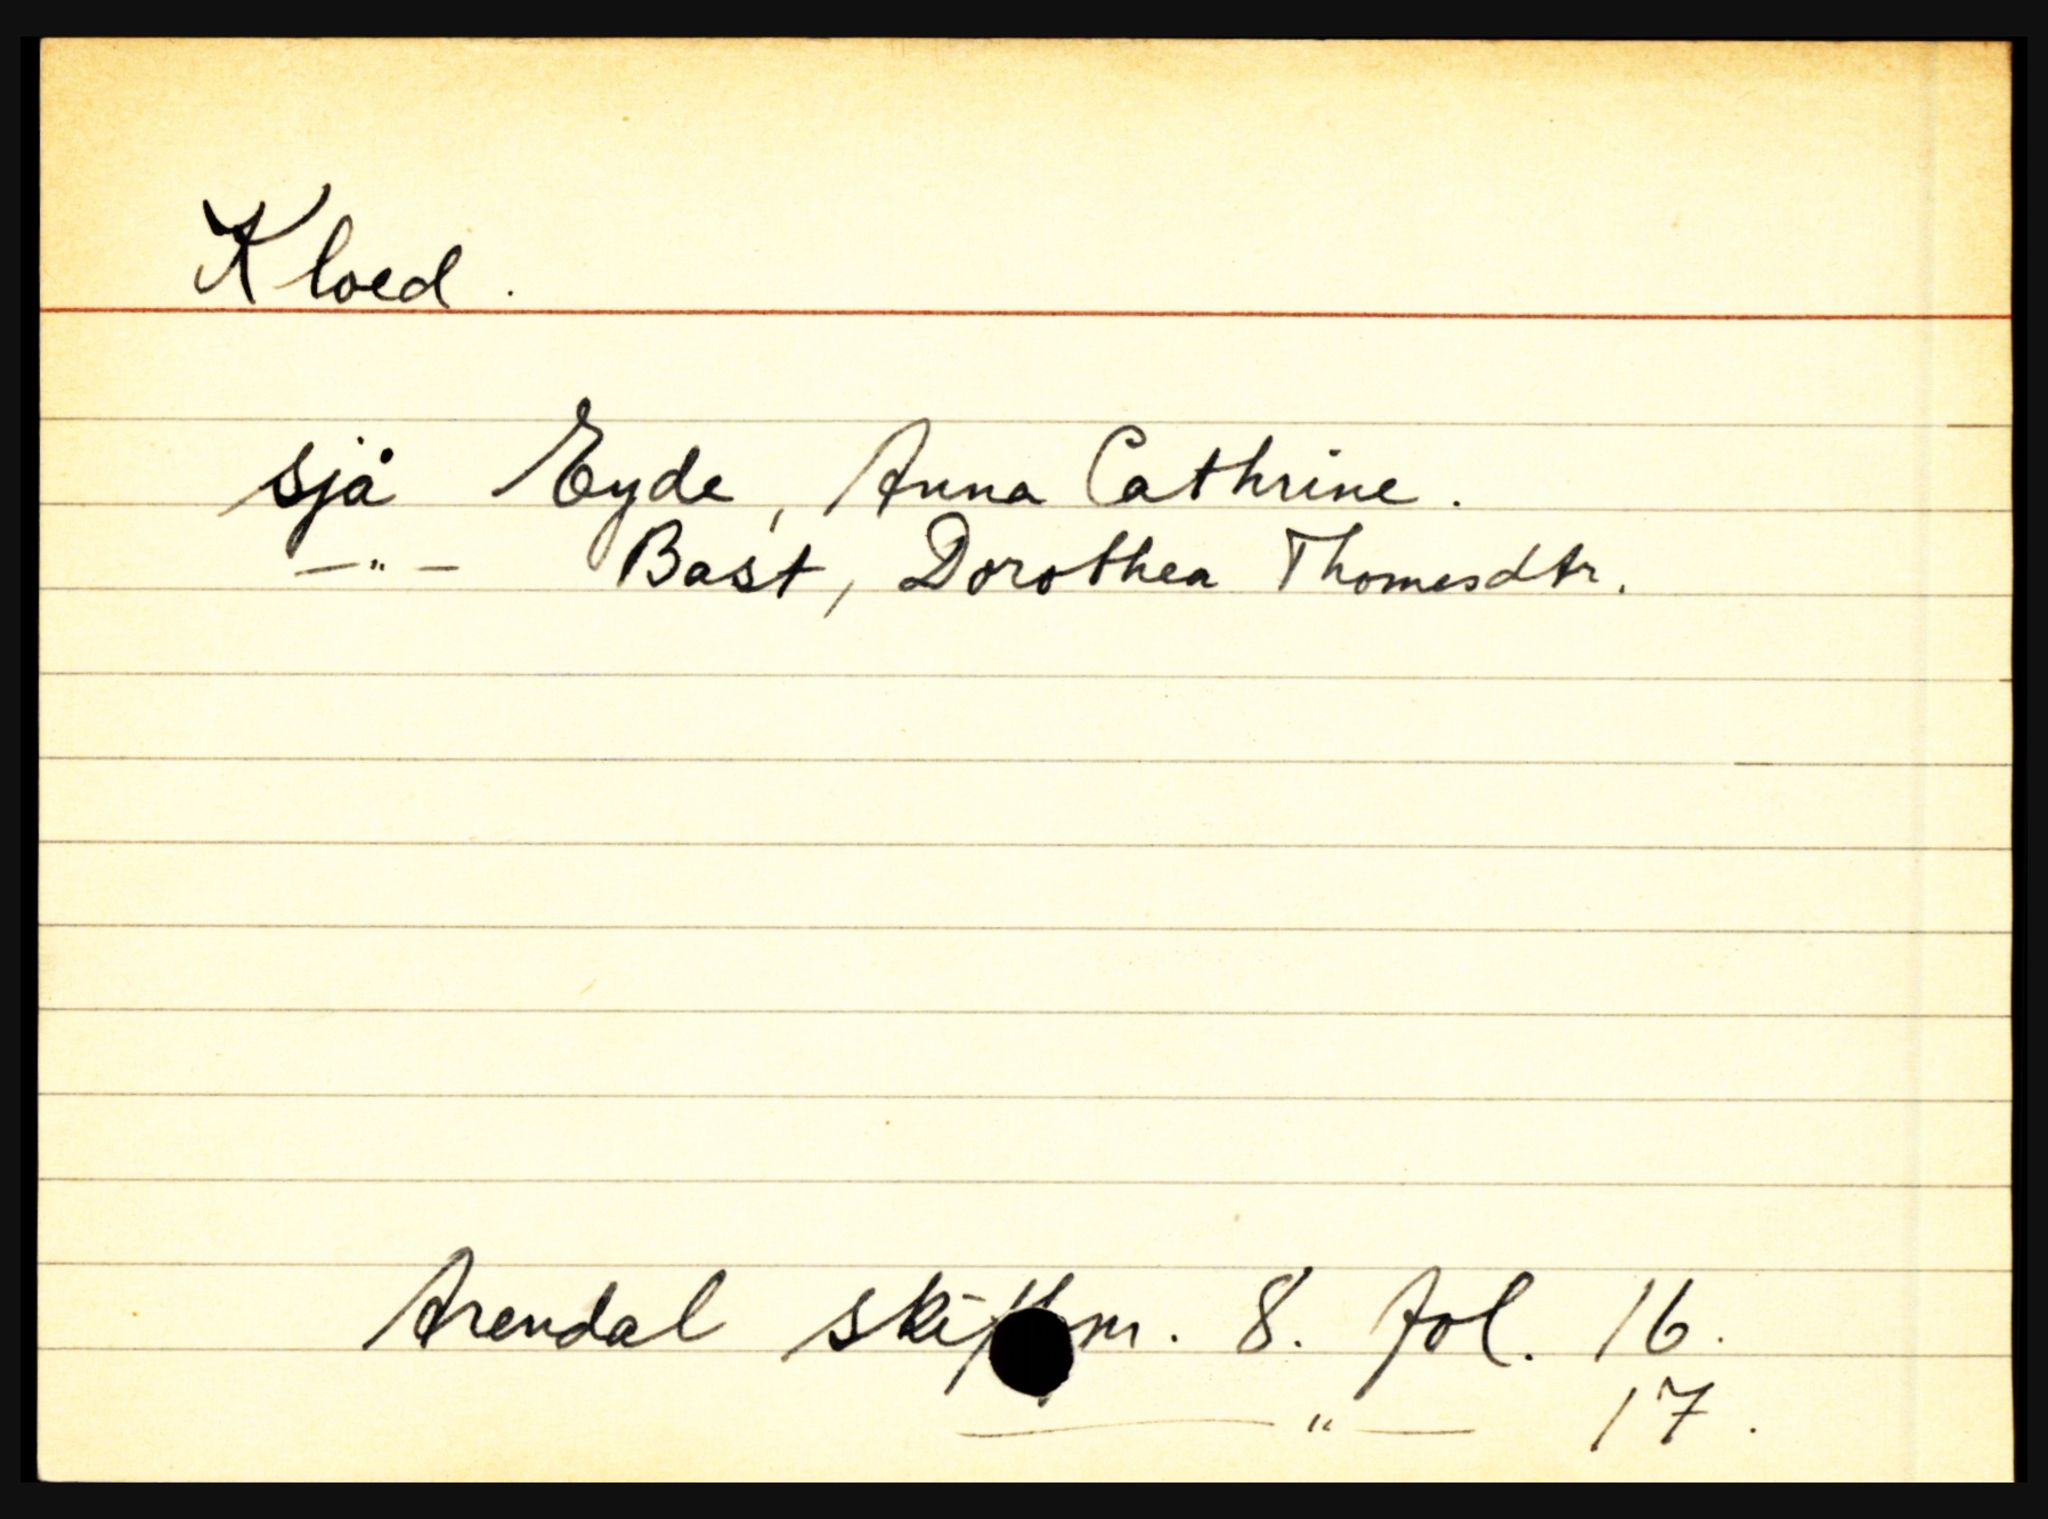 Kloed.
sjå Eyde, Anna Cathrine.
—"— Bast, Dorothea Thomesdtr.
Arendal m. 8. fol. 16.
—"— 17.